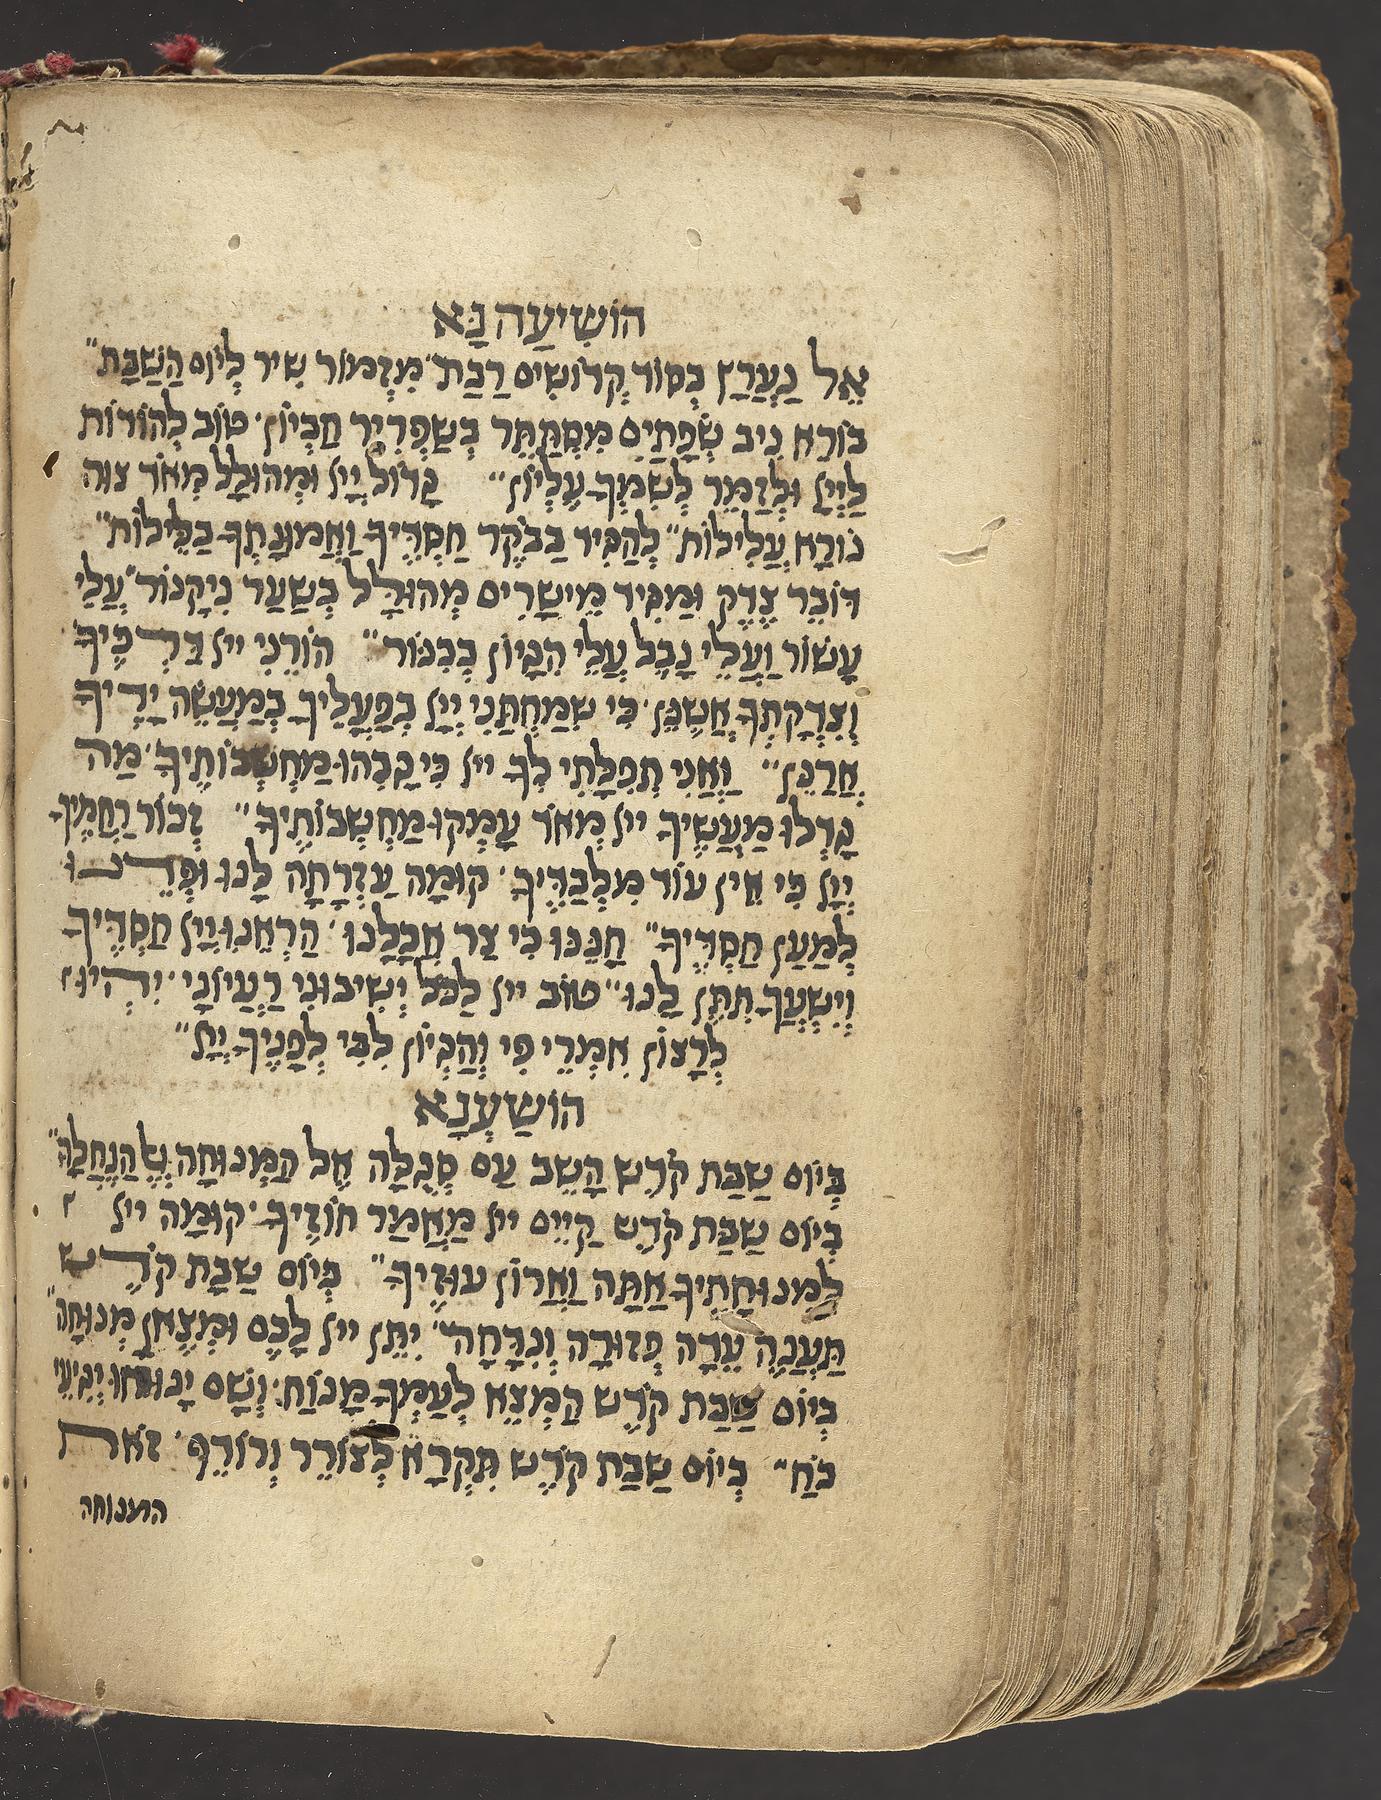 הוֹשִׁיעָה נָּא
אֵל נַעֲרַץ בְּסוֹד קְדוֹשִׁים רַבַּת׳ מִזְמוֹר שִׁיר לְיוֹם הַשַּׁבָּת״
בּוֹרֵא נִיב שְׂפָתַיִם מִסְתַּתֵּר בְּשַׁפְרִיר חֶבְיוֹן׳ טוֹב לְהוֹדוֹת
לַיְיָ וּלְזַמֵּר לְשִׁמְךָ עֶלְיוֹן״ גָּדוֹל יְיָ וּמְהוּלָל מְאֹד צוּה
נוֹרָא עֲלִילוֹת״ לְהַגִּיד בַּבֹּקֶר חַסְדֶּיךָ וֶאֱמוּנָתְךָ בַּלֵּילוֹת״
דּוֹבֵר צֶדֶק וּמַגִּיד מֵישָׁרִים מְהוּלָּל בְּשַׁעַר נִיקָנוֹר״ עֲלֵי
עָשׂוֹר וַעֲלֵי נָבֶל עֲלֵי הִגָּיוֹן בְּכִנּוֹר״ הוֹרֵנִי ייי בִּדְרָכֶיךָ
וְצִדְקָתְךָ אֲשַׁנֵּן׳ כִּי שִׂמַּחְתַּנִי יְיָ בְּפָעֳלֶיךָ בְּמַעֲשֵׂה יָדֶיךָ
אֲרַנֵּן״ וַאֲנִי תְפִלָּתִי לְךָ ייי כִּי גָבְהוּ מַחְשְׁבוֹתֶיךָ׳ מַה
גָּדְלוּ מַעֲשֶׂיךָ ייי מְאֹד עָמְקוּ מַחְשְׁבוֹתֶיךָ״ זְכוֹר רַחֲמֶיךָ
יְיָ כִּי אֵין עוֹד מִלְּבַדֶּיךָ׳ קוּמָה עֶזְרָתָה לָּנוּ וּפְדֵנוּ
לְמַעַן חַסְדֶּיךָ״ חָנֵּנוּ כִּי צַר אֲכָלָנוּ׳ הַרְאֵנוּ יְיָ חַסְדֶּיךָ
וְיֶשְׁעֲךָ תִּתֶּן לָנוּ״ טוֹב ייי לַכֹּל יְשִׁיבוּנִי רַעֲיוֹנָי׳ יִהְיוּ
לְרָצוֹן אִמְרֵי פִי וְהֶגְיוֹן לִבִּי לְפָנֶיךָ יְיָ״
הוֹשַׁעְנָא
בְּיוֹם שַׁבַּת קֹדֶשׁ הָשֵׁב עַם סְגֻלָּה אֶל הַמְּנוּחָה וְאֶל הַנַּחֲלָה״
בְּיוֹם שַׁבַּת קֹדֶשׁ קַיֵּים ייי מַאֲמַר חוֹזֶיךָ׳ קוּמָה ייי
לִמְנוּחָתֶיךָ אַתָּה וַאֲרוֹן עוּזֶּיךָ״ בְּיוֹם שַׁבַּת קֹדֶשׁ
תַּעֲנֶה עֵדָה פְּזוּרָה וְנִדָּחָה״ יִתֵּן ייי לָכֶם וּמְצֶאןָ מְנוּחָה״
בְּיוֹם שַׁבַּת קֹדֶשׁ הַמְצֵא לְעַמְּךָ מָנוֹחַ׳ וְשָׁם יָנוּחוּ יְגִיעֵי
כֹּחַ״ בְּיוֹם שַׁבַּת קֹדֶשׁ תִּקְרָא לְצוֹרֵר וְרוֹדֵף׳ זֹאת
המנוחה